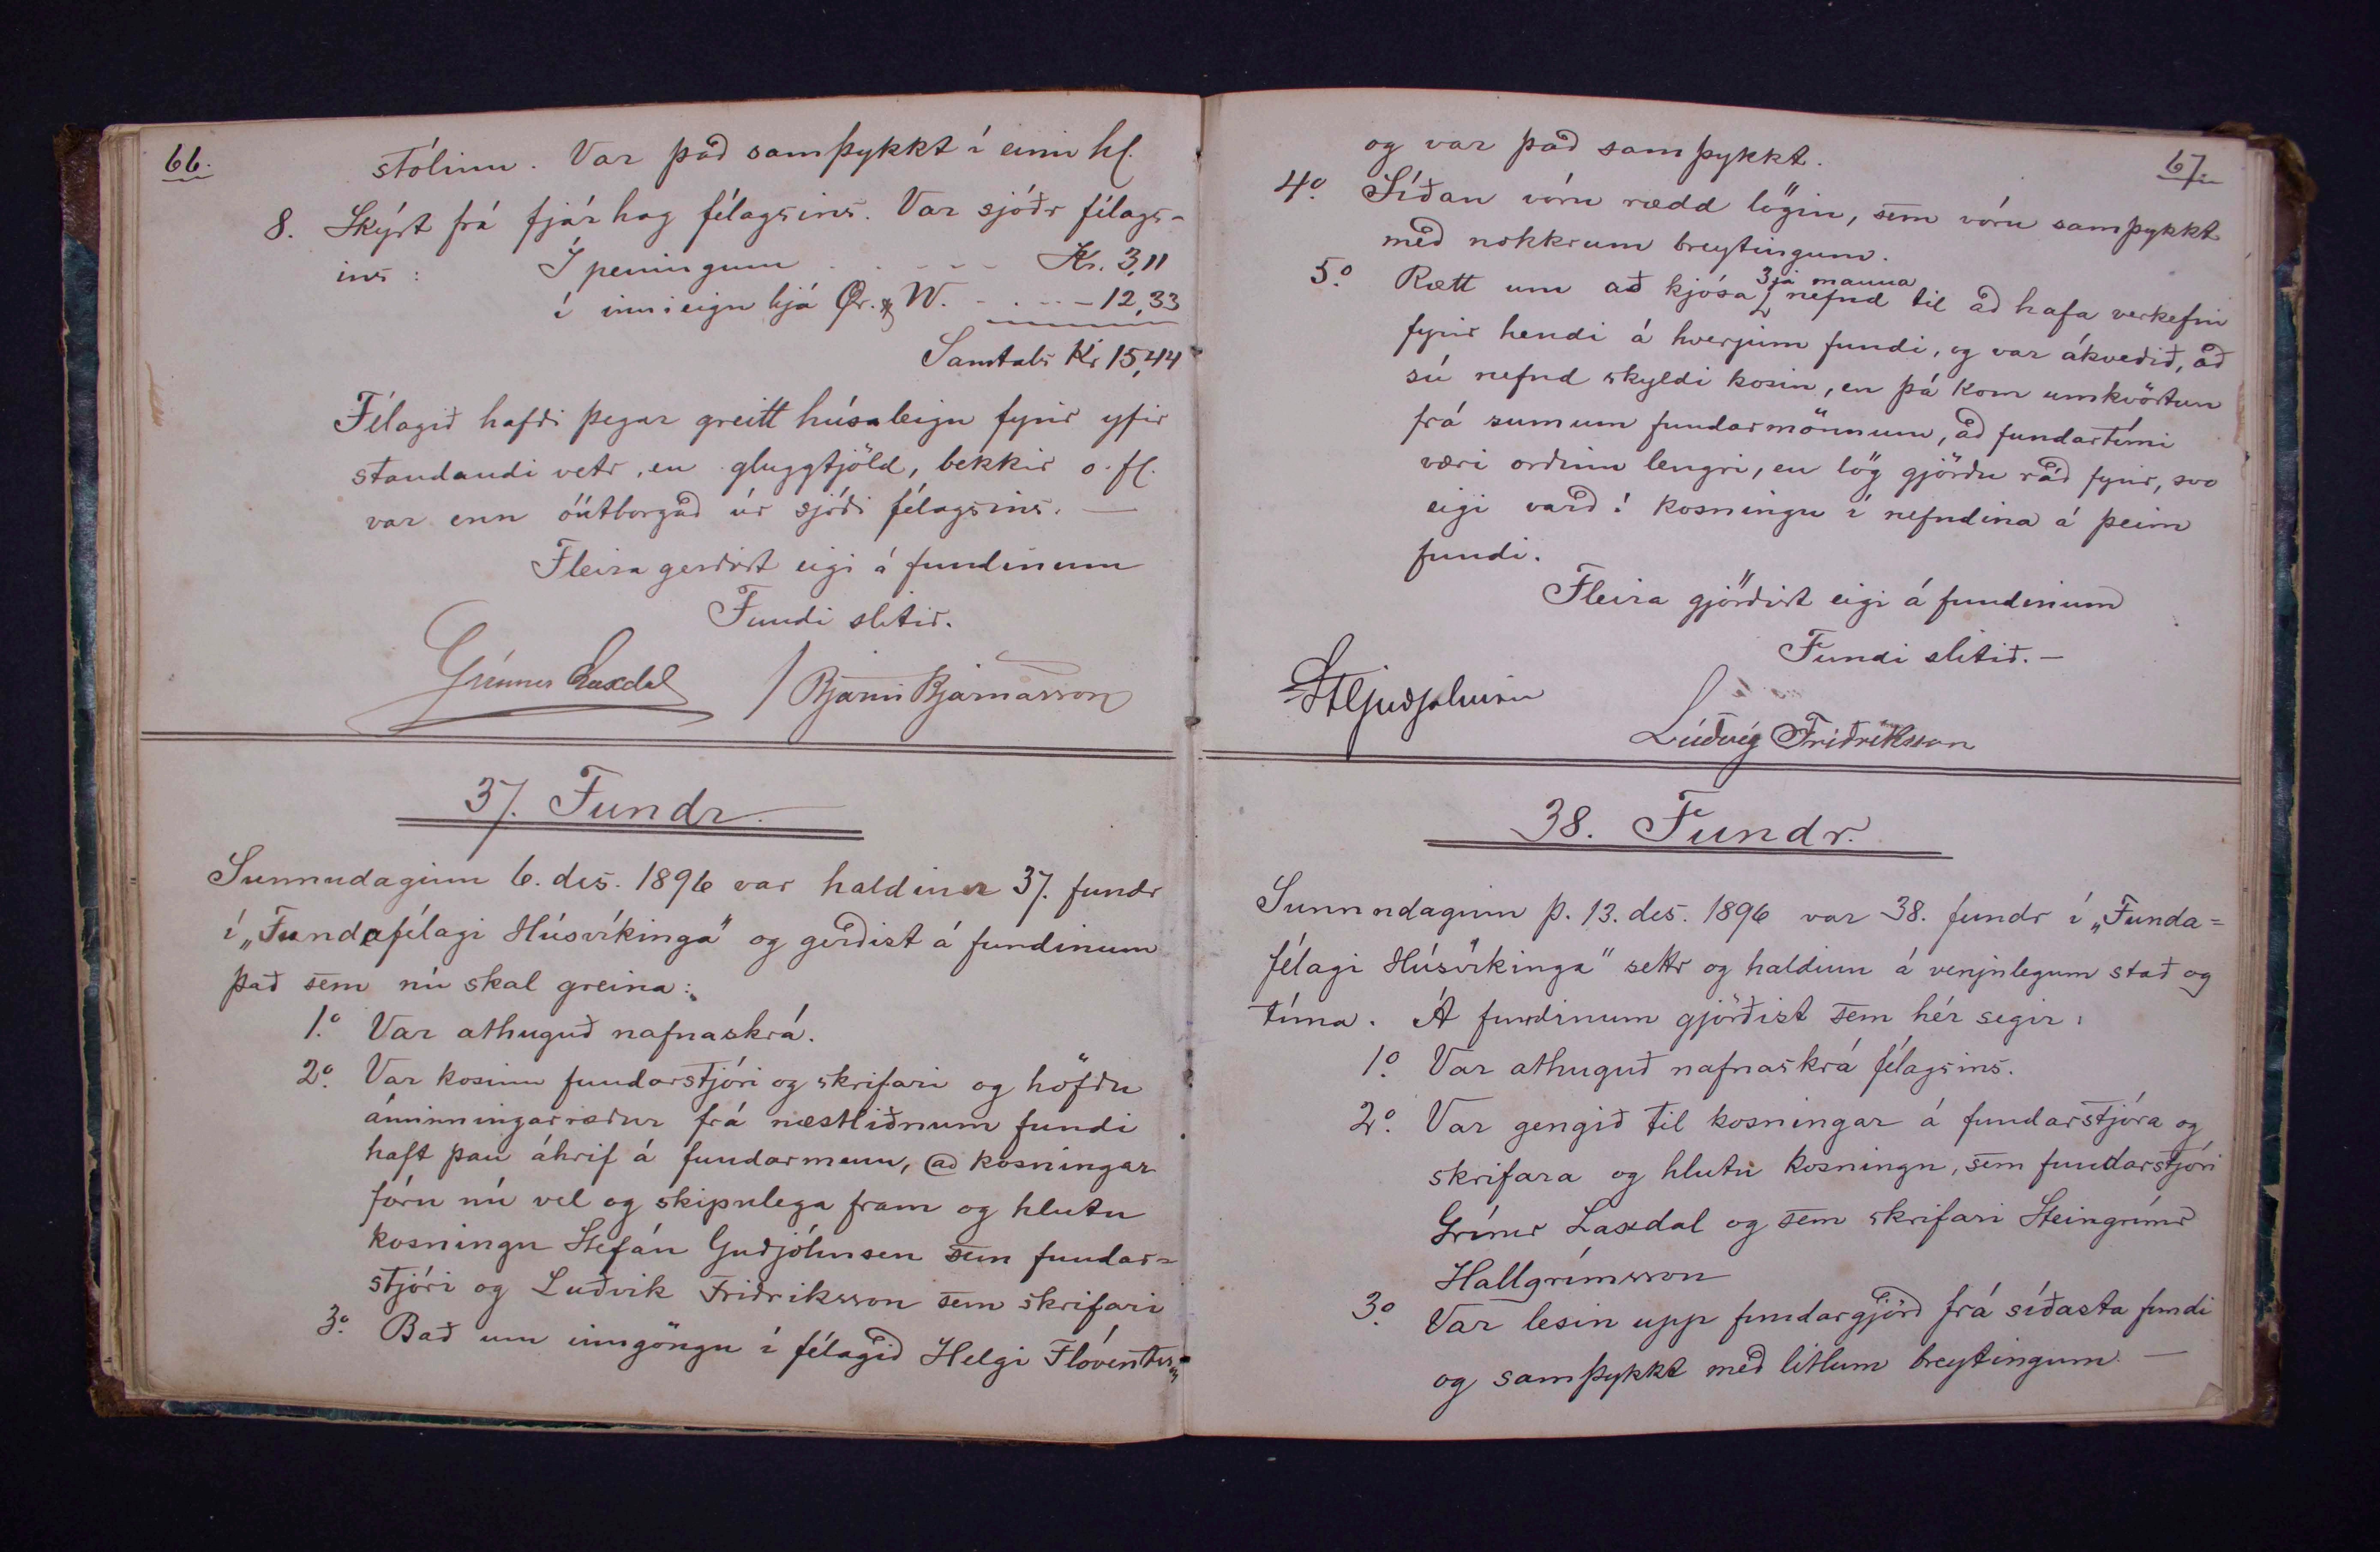 66.
stólinn. Var það samþykkt í einu hl.
8. Skýrt frá fjárhag félagsins. Var sjóðr félags-
ins: Í peningum . . . . . Kr. 3,11
í inni eign hjá Ör. & W. . . . - 12,33
Samtals Kr 15,44
Félagið hafði þegar greitt húsaleigu fyrir yfir
standandi vetr, en gluggtjöld, bekkir o. fl.
var enn óútborgað úr sjóði félagsins. —
Fleira gerðist eigi á fundinum
Fundi slitið.
Grímur Laxdal / Bjarni Bjarnarson
37. Fundr.
Sunnudaginn 6. des. 1896 var haldinn 37. fundr
í „Fundafélagi Húsvíkinga" og gerðist á fundinum
það sem nú skal greina:
1.o Var athuguð nafnaskrá.
2.o Var kosinn fundarstjóri og skrifari og höfðu
áminningarræður frá næstliðnum fundi
haft þau áhrif á fundarmenn, að kosningar
fóru nú vel og skipulega fram og hlutu
kosningu Stefán Guðjóhnsen sem fundar=
stjóri og Luðvik Friðriksson sem skrifari
3.o Bað um inngöngu í félagið Helgi Flóventsson
67.
og var það samþykkt.
4.o Síðan vóru rædd lögin, sem vóru samþykkt
með nokkrum breytingum.
3ja manna
5.o Rætt um að kjósa nefnd til að hafa verkefni
fyrir hendi á hverjum fundi, og var ákveðið, að
sú nefnd skyldi kosin, en þá kom umkvörtun
frá sumum fundarmönnum, að fundartími
væri orðinn lengri, en lög gjörðu ráð fyrir, svo
eigi varð: kosningu í nefndina á þeim
fundi.
Fleira gjörðist eigi á fundinum
Fundi slitið. —
StGuðjohnsen
Lúðvíg Friðriksson
38. Fundr.
Sunnudaginn þ. 13. des. 1896 var 38. fundr í „Funda=
félagi Húsvíkinga" settr og haldinn á venjulegum stað og
tíma. Á fundinum gjörðist sem hér segir:
1.o Var athuguð nafnaskrá félagsins.
2.o Var gengið til kosningar á fundarstjóra og
skrifara og hlutu kosningu, sem fundarstjóri
Grímr Laxdal og sem skrifari Steingrímr
Hallgrímsson
3.o Var lesin upp fundargjörð frá síðasta fundi
og samþykkt með litlum breytingum. —